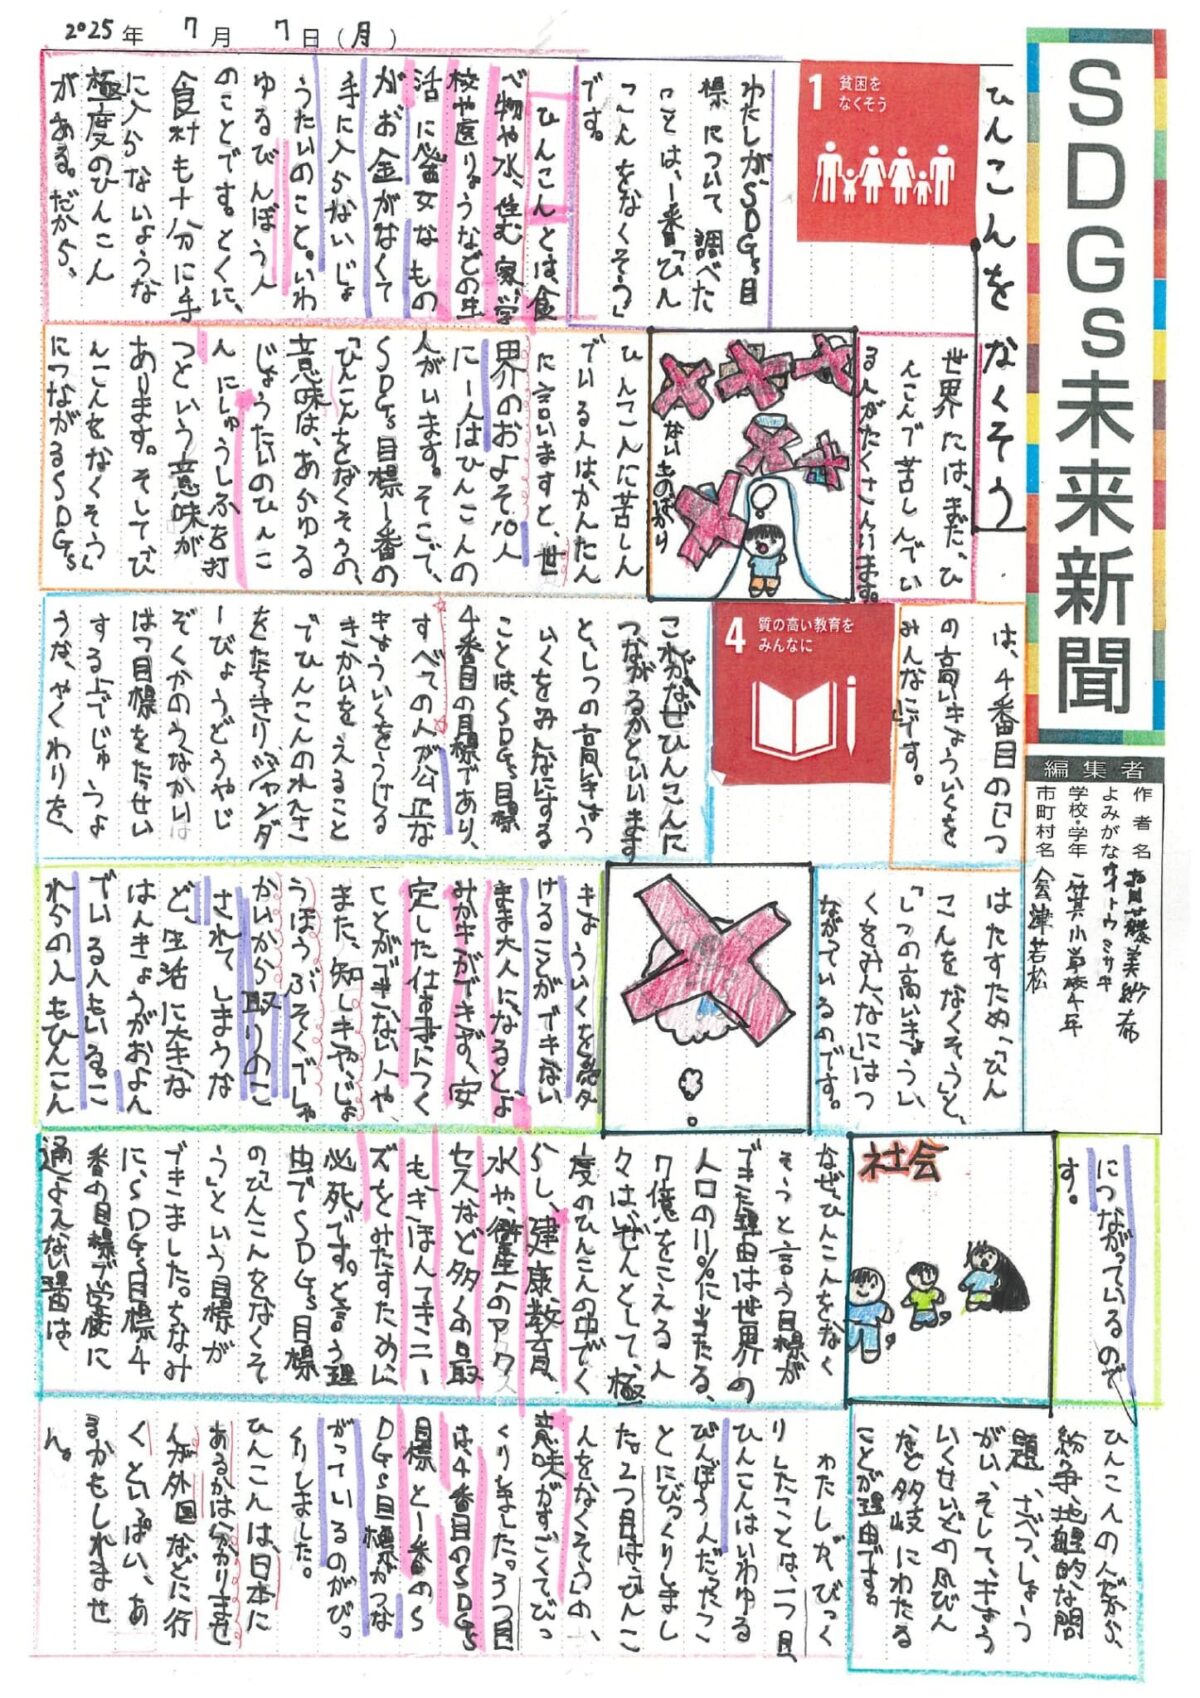 2025年 7月 7日(月)
SDGs未来新聞
編集者
作者名
よみがな サイトウミサキ
学校・学年 一箕小学校4年
市町村名 会津若松
ひんこんをなくそう
1 貧困をなくそう
わたしが、SDGs目
標について調べた
ことは、1番「ひん
こんをなくそう」
です。
ひんこんとは、食
べ物や水、住む家、学
校や医りょうなどの生
活に必要なもの
がお金がなくて
手に入らないじょ
うたいのこと。いわ
ゆるびんぼう人
のことです。とくに、
食材も十分に手
に入らないような
極度のひんこん
がある。だから、
世界には、まだ、ひ
んこんで苦しんでい
る人がたくさんいます。
ないものばかり
ひんこんに苦しん
でいる人は、かんたん
に言いますと、世
界のおよそ10人
に一人はひんこんの
人がいます。そこで、
SDGs目標1番の
「ひんこんをなくそう」の、
意味は、あらゆる
じょうたいのひんこ
んにしゅうしふを打
つという意味が
あります。そして、「ひ
んこんをなくそう」
につながるSDGs
は、4番目の「しつ
の高いきょういくを
みんなに」です。
4 質の高い教育をみんなに
これがなぜひんこんに
つながるかといいます
と、しつの高いきょう
いくをみんなにする
ことは、SDGs目標
4番目の目標であり、
すべての人が公正な
きょういくをうける
きかいをえること
でひんこんのれんさ
をたちきりジェンダ
ーびょうどうやじ
ぞくかのうなかいは
はつ目標をたっせい
する上でじゅうよ
うな、やくわりを、
はたすため、「ひん
こんをなくそう」と、
「しつの高いきょうい
くをみんなに」はつ
ながっているのです。
きょういくを受
けることができない
まま大人になると、よ
みかきができず、安
定した仕事につく
ことができない人や、
また、知しきやじょ
うほうぶそくでしゃ
かいから取りのこ
されてしまうな
ど、生活に大きな
はんきょうがおよん
でいる人もいる。こ
れらの人もひんこん
につながっているので
す。
社会
なぜ、ひんこんをなく
そうと言う目標が
できた理由は世界の
人口の11%に当たる、
7億をこえる人
々は、いぜんとして、極
度のひんこんの中でく
らし、健康、教育、
水や、衛生へのアク
セスなど多くの最
も、きほんてきニー
ズをみたすために
必死です。と言う理
由でSDGs目標
の「ひんこんをなくそ
う」という目標が
できました。ちなみ
に、SDGs目標4
番の目標で学校に
通えない理由は、
ひんこんの人だから、
紛争、地理的な問
題、さべつ、しょう
がい、そして、きょう
いくせいどの不びん
など多岐にわたる
ことが理由です。
わたしが、びっく
りしたことは、一つ目
ひんこんはいわゆる
びんぼう人だったこ
とにびっくりしまし
た。2つ目は、「ひんこ
んをなくそう」の、
意味がすごくてびっ
くりました。3つ目
は、4番目のSDGs
目標と1番のS
DGs目標がつな
がっているのがびっ
くりしました。
ひんこんは、日本に
あるかは、分かりませ
んが外国などに行
くといっぱい、あ
るかもしれませ
ん。